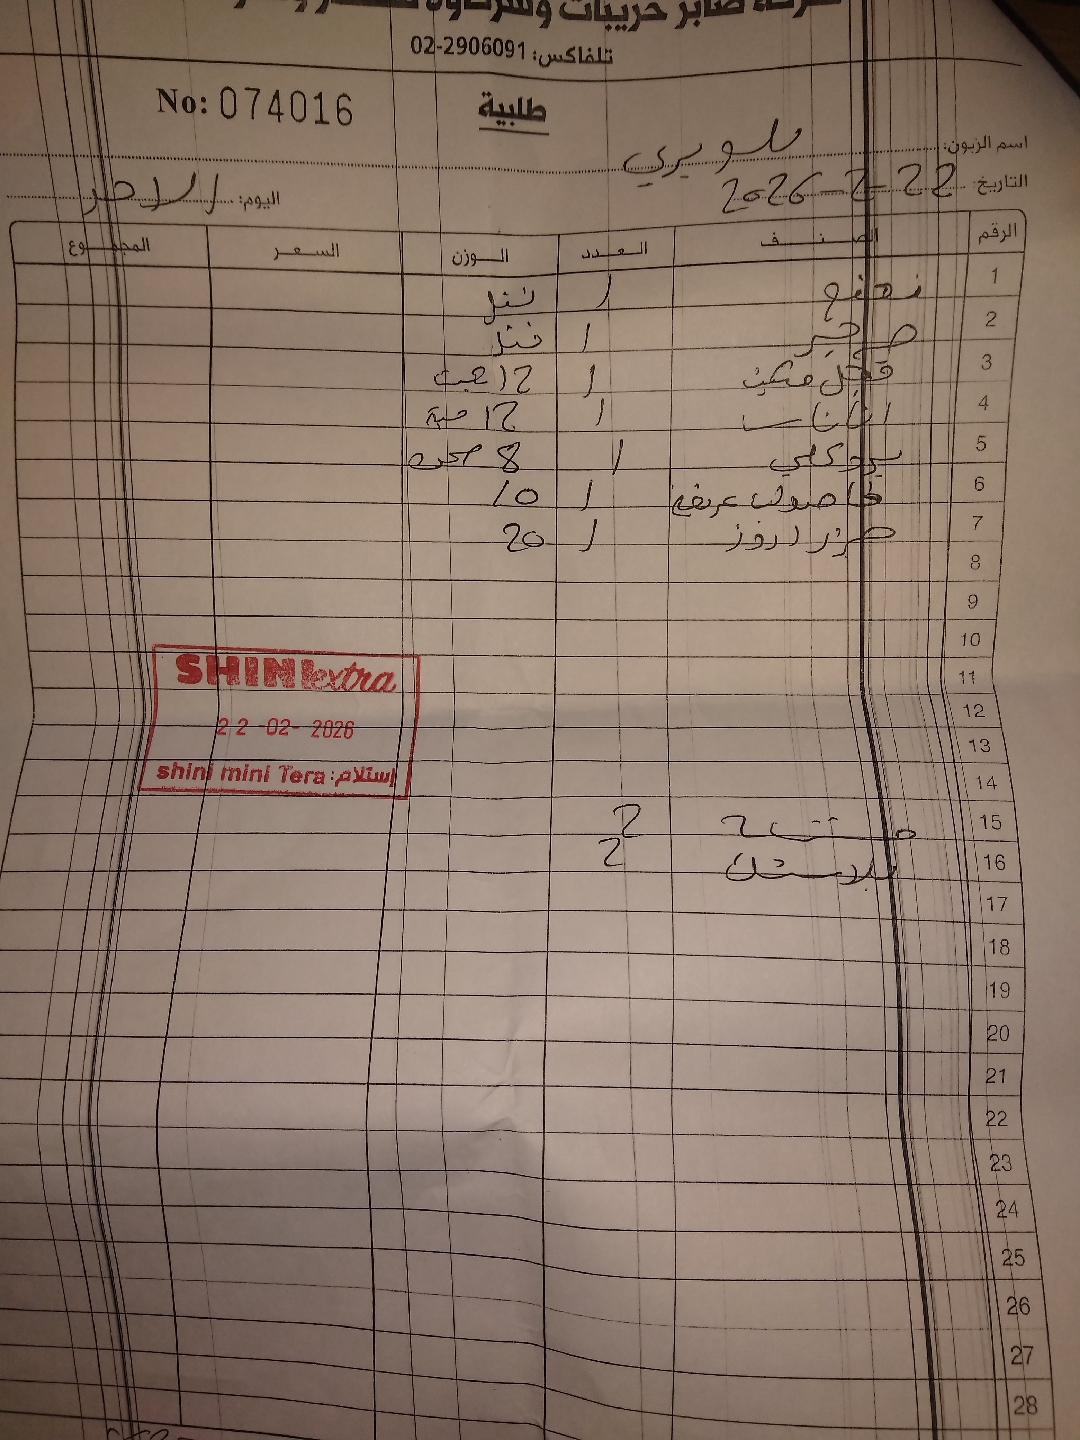 شركة صابر حريبات وشركاؤه للخضار
تلفاكس: 02-2906091
No: 074016
طلبية
اسم الزبون:
التاريخ: 22-2-2026
اليوم: الاحد
الرقم الصنف العدد الوزن السعر المجموع
1 نعنع 1
2 1
3 فجل 1 12
4 اناناس 1 12 حبة
5 بروكلي 1 8
6 فاصوليا عريضة 1 10
7 1 20
8
9
10
11
SHINI extra
12
22-02-2026
13
shini mini Tera :إستلام
14
15 2
16 بلاستك 2
17
18
19
20
21
22
23
24
25
26
27
28